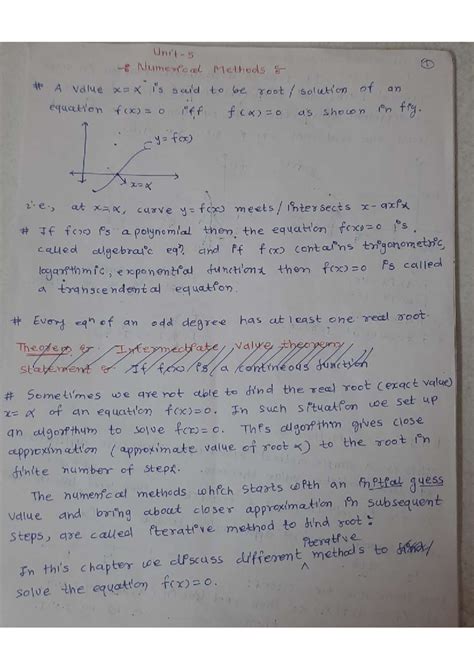 Unit-5
Numerical Methods :
①
# A value x = α is said to be root/solution of an
equation f(x)=0 iff f(α)=0 as shown in fig.
y=f(x)
x=α
i.e., at x=α, curve y=f(x) meets/intersects x-axis
# If f(x) is a polynomial then the equation f(x)=0 is
called algebraic eqn. and if f(x) contains trigonometric,
logarithmic, exponential functions then f(x)=0 is called
a transcendental equation.
# Every eqn of an odd degree has at least one real root.
Theorem : Intermediate value theorem
Statement : If f(x) is a continuous function
# Sometimes we are not able to find the real root (exact value)
x=α of an equation f(x)=0. In such situation we set up
an algorithm to solve f(x)=0. This algorithm gives close
approximation (approximate value of root α) to the root in
finite number of steps.
The numerical methods which starts with an initial guess
value and bring about closer approximation in subsequent
steps, are called iterative method to find root.
iterative
In this chapter we discuss different ^ methods to find/
solve the equation f(x)=0.